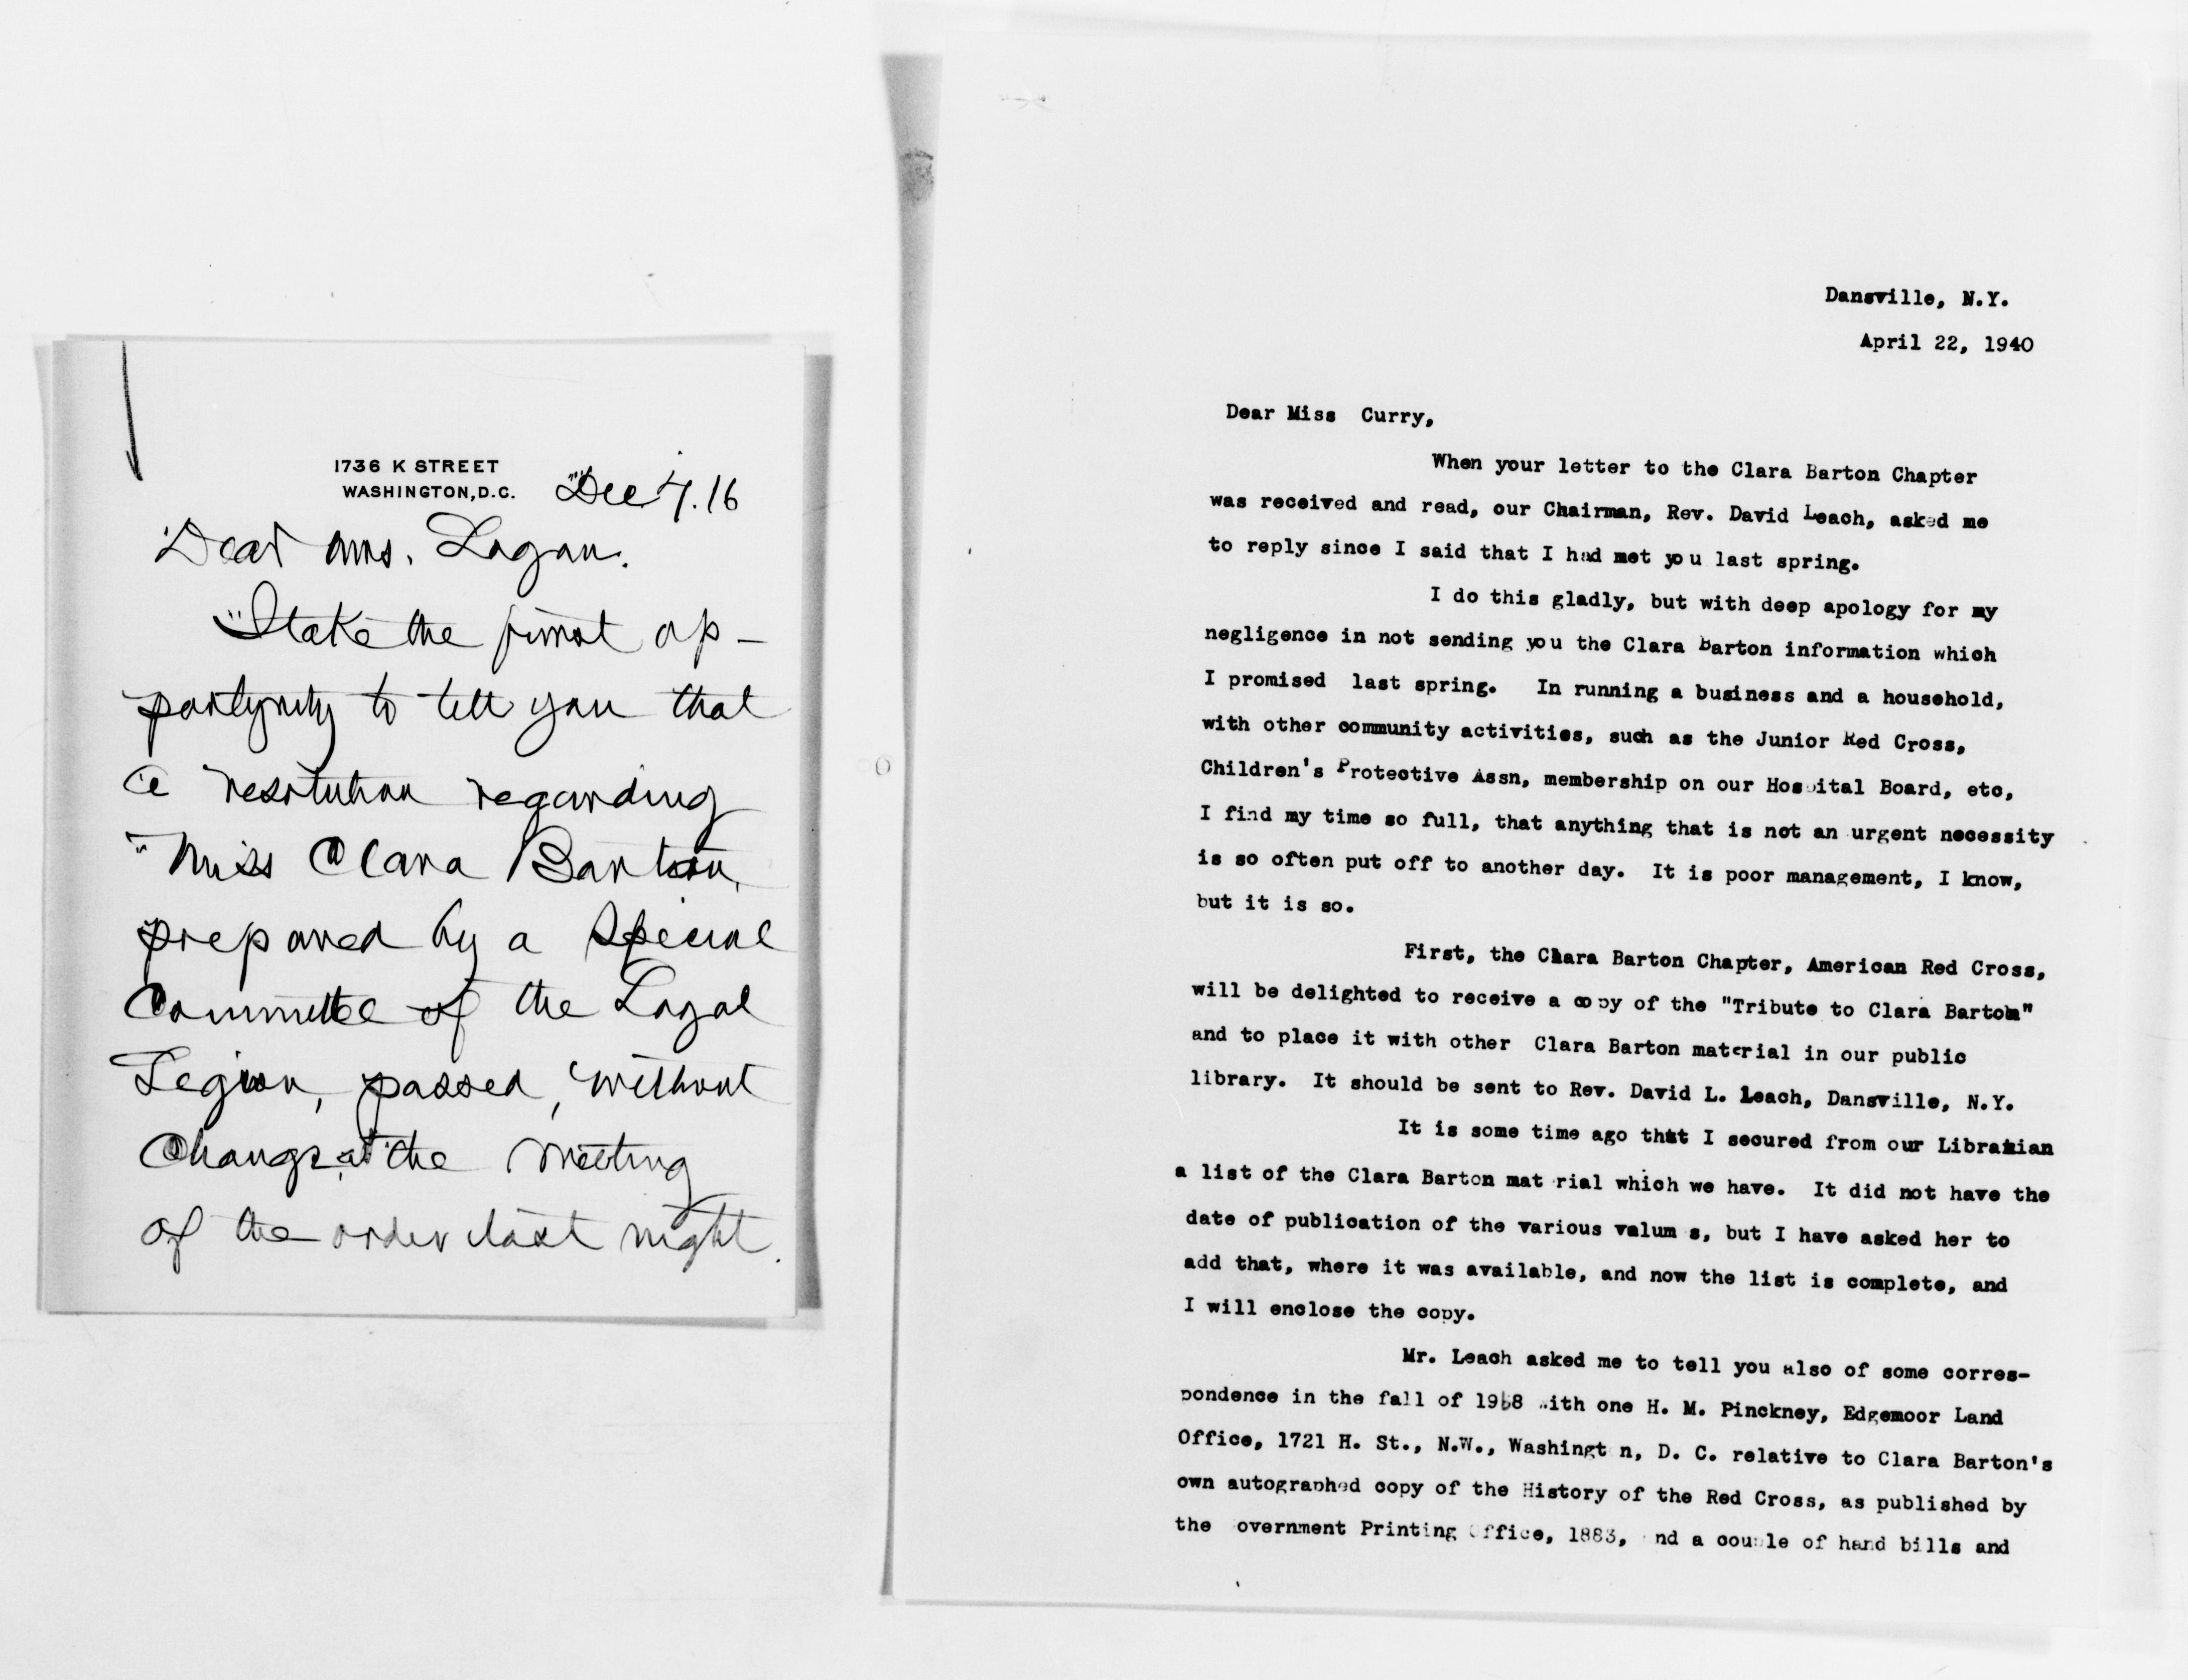 1736 K STREET
WASHINGTON, D.C.
Dec 7. 16
Dear Mrs. Logan.
I take the first op-
portunity to tell you that
a resolution regarding
Miss Clara Barton,
prepared by a Special
Committee of the Loyal
Legion, passed, without
change, at the meeting
of the order last night.
Dansville, N.Y.
April 22, 1940
Dear Miss Curry,
When your letter to the Clara Barton Chapter
was received and read, our Chairman, Rev. David Leach, asked me
to reply since I said that I had met you last spring.
I do this gladly, but with deep apology for my
negligence in not sending you the Clara Barton information which
I promised last spring. In running a business and a household,
with other community activities, such as the Junior Red Cross,
Children's Protective Assn, membership on our Hospital Board, etc,
I find my time so full, that anything that is not an urgent necessity
is so often put off to another day. It is poor management, I know,
but it is so.
First, the Clara Barton Chapter, American Red Cross,
will be delighted to receive a copy of the "Tribute to Clara Barton"
and to place it with other Clara Barton material in our public
library. It should be sent to Rev. David L. Leach, Dansville, N.Y.
It is some time ago that I secured from our Librarian
a list of the Clara Barton mat rial which we have. It did not have the
date of publication of the various valum s, but I have asked her to
add that, where it was available, and now the list is complete, and
I will enclose the copy.
Mr. Leach asked me to tell you also of some corres-
pondence in the fall of with one H. M. Pinckney, Edgemoor Land
Office, 1721 H. St., N.W., Washingt n, D. C. relative to Clara Barton's
own autographed copy of the History of the Red Cross, as published by
the overnment Printing Office, 1883, nd a couple of hand bills and